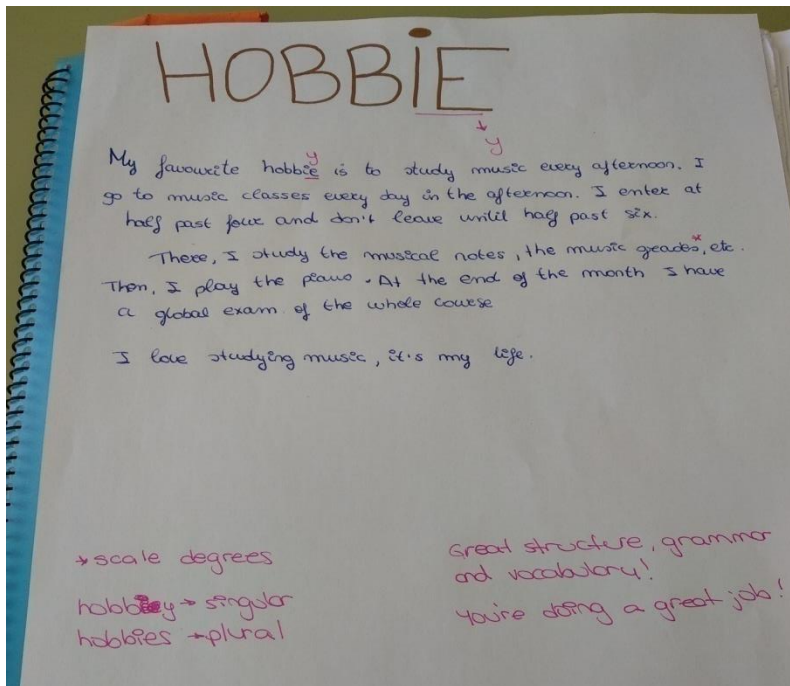 HOBBIE
y
y
My favourite hobbie is to study music every afternoon. I
go to music classes every day in the afternoon. I enter at
half past four and don't leave until half past six.
There, I study the musical notes, the music grades*, etc.
Then, I play the piano. At the end of the month I have
a global exam of the whole course
I love studying music, it's my life.
→ scale degrees
hobby → singular
hobbies → plural
Great structure, grammar
and vocabulary!
You're doing a great job!